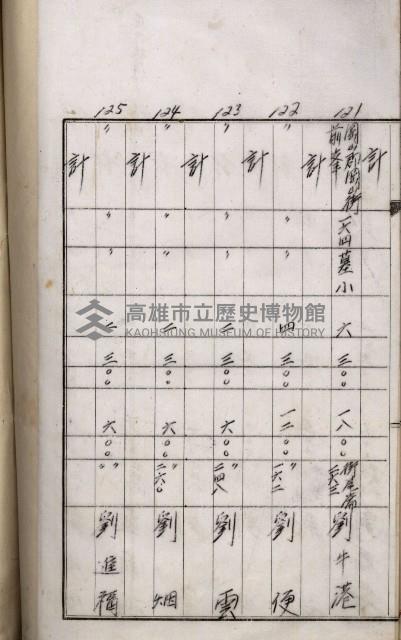 121 122 123 124 125
計
岡山郡岡山街前峯 一六四 墓 小 六 三〇〇 一八〇〇 街尾崙 劉牛港
計
〃 〃 〃 四 三〇〇 一二〇〇 〃一六二 劉便
計
〃 〃 〃 二 三〇〇 六〇〇 〃二四八 劉雲
計
〃 〃 〃 二 三〇〇 六〇〇 〃二六〇 劉烟
計
〃 〃 〃 二 三〇〇 六〇〇 〃〃 劉進福
計
高雄市立歷史博物館
KAOHSIUNG MUSEUM OF HISTORY